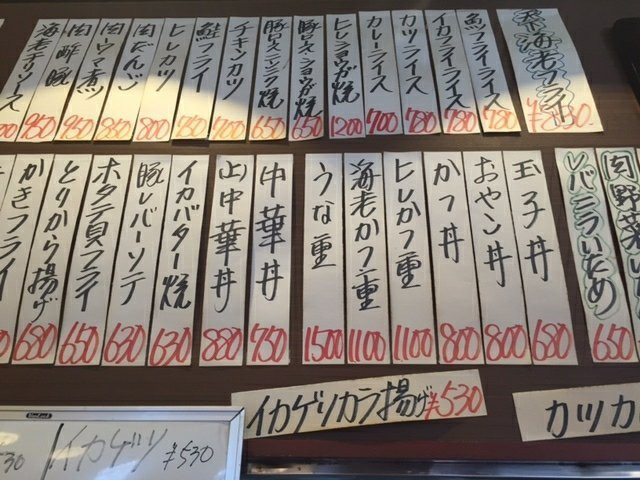 海老フライ
魚フライライス 780
イカフライライス 780
カツライス 780
カレーライス 700
ヒレショウガ焼 1200
豚ロースショウガ焼 650
豚ロースニンニク焼 650
チキンカツ 700
鮭フライ 750
ヒレカツ 800
肉だんご 850
肉ウマ煮 950
肉酢豚 950
海老チリソース
肉野菜いため
レバニラいため 650
玉子丼 680
おやこ丼 800
かつ丼 800
ヒレかつ重 1100
海老かつ重 1100
うな重 1500
中華丼 750
山中華丼 880
イカバター焼 630
豚レバーソテ 630
ホタテ貝フライ 650
とりから揚げ 680
かきフライ
イカゲソカラ揚げ ¥530
カツカ
イカゲソ ¥530
530